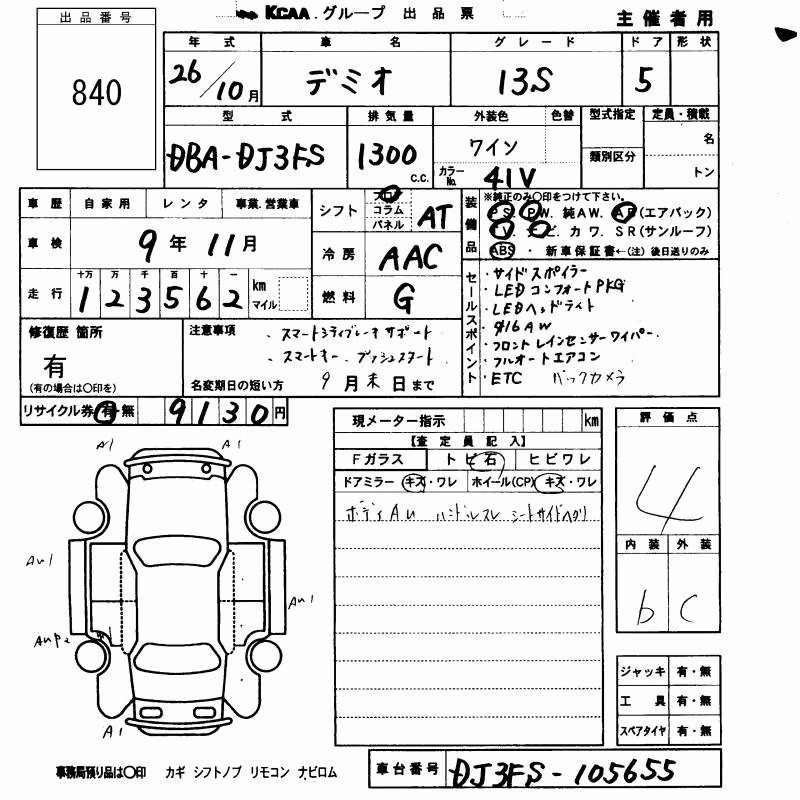 KCAA.グループ 出品票
主催者用
出品番号
840
年式 車名 グレード ドア 形状
26/10月 デミオ 13S 5
型式 排気量 外装色 色替 型式指定 定員・積載
DBA-DJ3FS 1300 c.c. ワイン 類別区分 名
カラーNo. 41V トン
車歴 自家用 レンタ 事業.営業車
車検 9年11月
走行 十万 万 千 百 十 一 km マイル
1 2 3 5 6 2
シフト フロア コラム パネル AT
冷房 AAC
燃料 G
装備品 ※純正のみ〇印をつけて下さい。
P.S. P.W. 純A.W. AB(エアバック)
T.V. ナビ. カワ. SR(サンルーフ)
ABS ・ 新車保証書←(注)後日送りのみ
セールスポイント
・サイドスポイラー
・LEDコンフォートPKG
・LEDヘッドライト
・φ16AW
・フロントレインセンサーワイパー.
・フルオートエアコン
・ETC バックカメラ
修復歴 箇所
有
(有の場合は〇印を)
注意事項
、スマートシティブレーキサポート
、スマートキー、プッシュスタート
名変期日の短い方 9月末日まで
リサイクル券 有・無 9130円
現メーター指示 km
【査定員記入】
Fガラス トビ石 ヒビワレ
ドアミラー キズ・ワレ ホイール(CP) キズ・ワレ
ボディAU ハンドルスレ シートサイドヘタリ
評価点
4
内装 外装
b C
ジャッキ 有・無
工具 有・無
スペアタイヤ 有・無
A1 A1
AU1
AU1
A1
事務局預り品は〇印 カギ シフトノブ リモコン ナビロム
車台番号 DJ3FS-105655